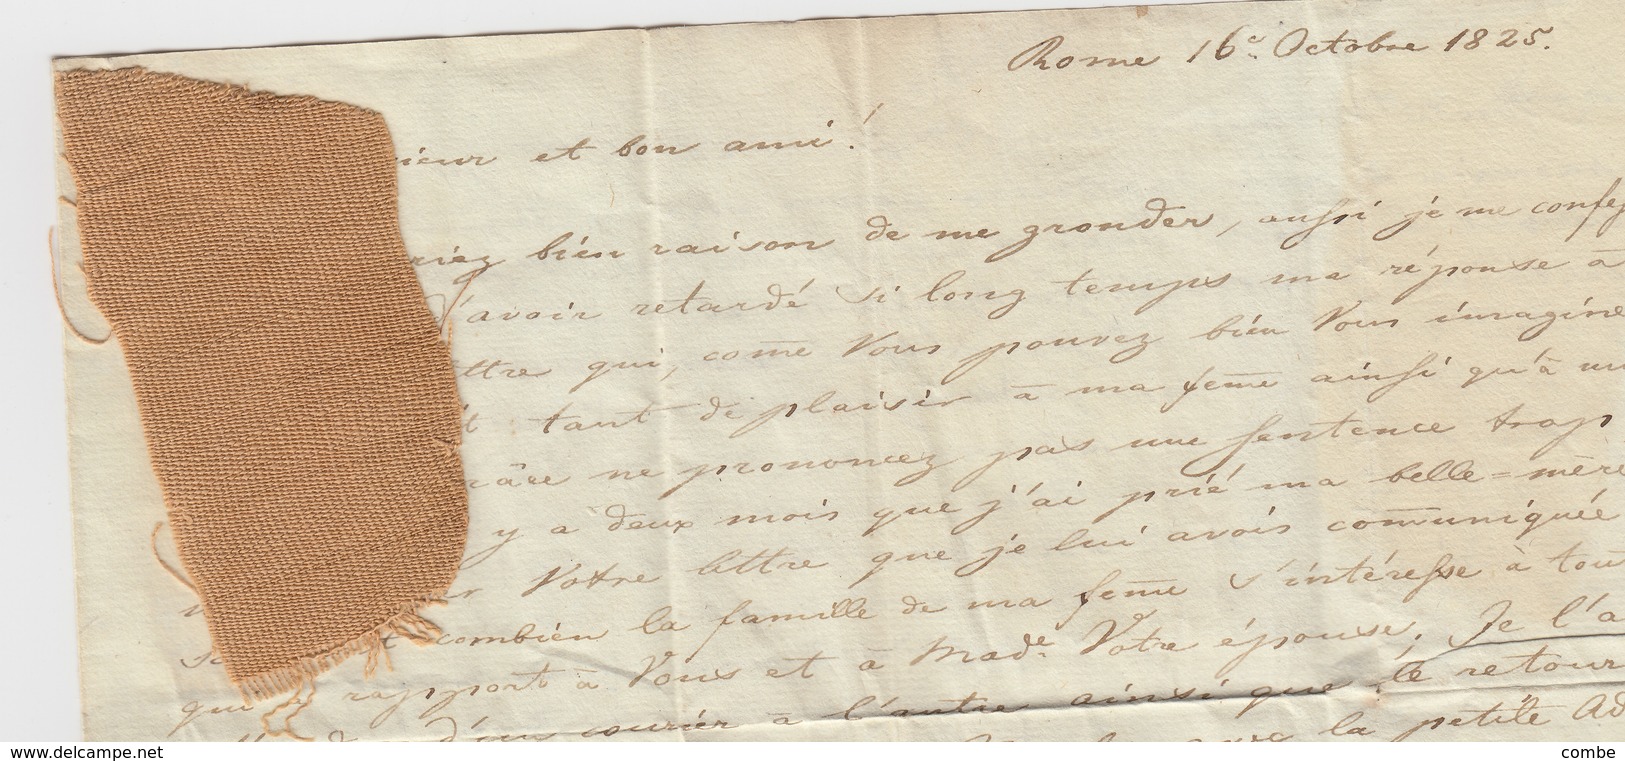 Rome 16e Octobre 1825.
sieur et bon ami!
riez bien raison de me gronder, aussi je me confes
d'avoir retardé si long temps ma réponse à
ttre qui, come Vous pouvez bien Vous imagine
t tant de plaisir à ma feme ainsi qu'à m
râce ne prononcez pas une sentence trop
y a deux mois que j'ai prié ma belle=mère
Votre lettre que je lui avois comuniquée
combien la famille de ma feme s'intéresse à tout
qui rapport à Vous et à Made Votre épouse. Je l'a
d'un courier à l'autre ainsi que le retour
la petite Ad
www.delcampe.net
combe